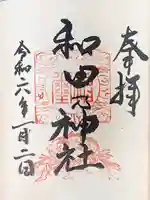 奉拝
和田神社
令和六年一月二日